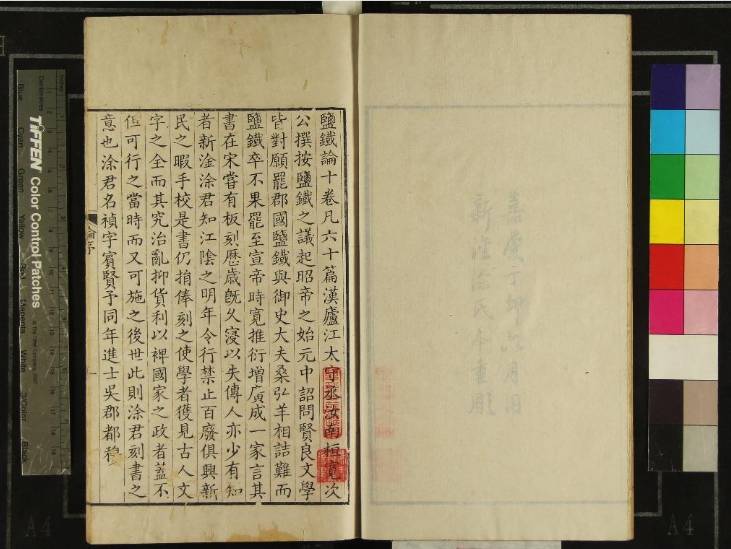 鹽鐵論十卷凡六十篇漢廬江太守丞汝南桓寬次
公撰按鹽鐵之議起昭帝之始元中詔問賢良文學
皆對願罷郡國鹽鐵與御史大夫桑弘羊相詰難而
鹽鐵卒不果罷至宣帝時寬推衍增廣成一家言其
書在宋嘗有板刻歷歲旣久寖以失傳人亦少有知
者新淦涂君知江陰之明年令行禁止百廢俱興新
民之暇手校是書仍捐俸刻之使學者獲見古人文
字之全而其究治亂抑貨利以裨國家之政者蓋不
但可行之當時而又可施之後世此則涂君刻書之
意也涂君名禎字賓賢予同年進士吳郡都穆
論序
TIFFEN Color Control Patches
Blue
Cyan
Green
Yellow
Red
Magenta
White
3/Color
Black
A4
A4